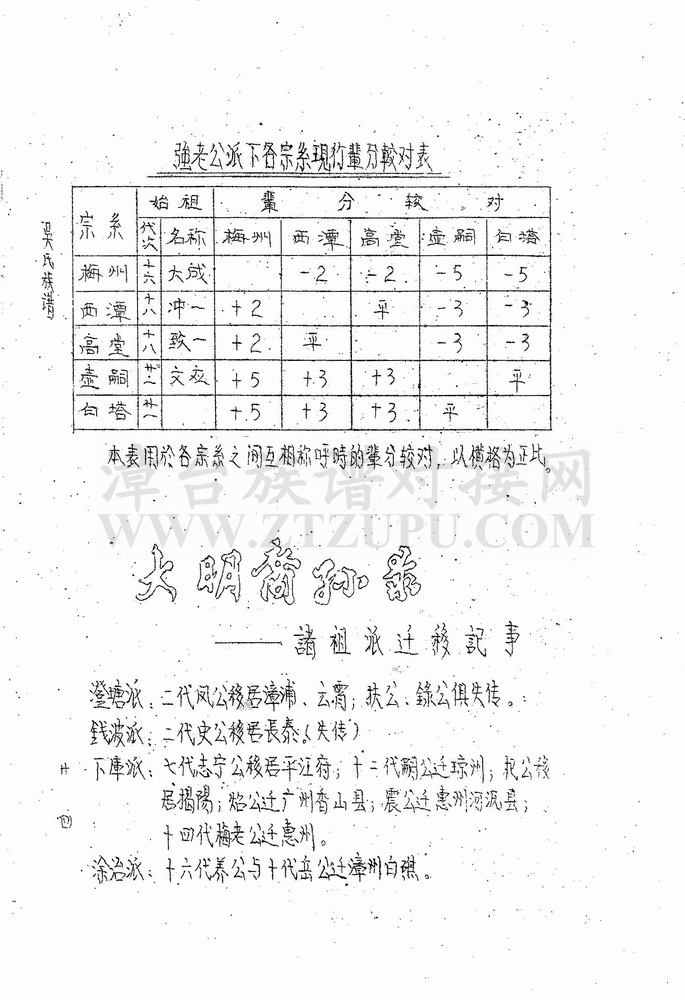 強老公派下各宗系現行輩分較对表
宗系 始祖 輩分較对
代次 名称 梅州 西潭 高堂 壶嗣 白塔
梅州 十六 大成 -2 -2 -5 -5
西潭 十八 冲一 +2 平 -3 -3
高堂 十八 致一 +2 平 -3 -3
壶嗣 廿一 文应 +5 +3 +3 平
白塔 廿一 +5 +3 +3 平
本表用於各宗系之间互相称呼時的輩分较对，以横格为正比。
吴氏族譜
漳台族谱对接网
WWW.ZTZUPU.COM
大明裔孙
——諸祖派迁移記事
澄塘派：二代凤公移居漳浦、云霄；扶公、錄公俱失传。
钱波派：二代史公移居長泰（失传）
下庫派：七代志宁公移居平江府；十二代嗣公迁琼州；杞公移
居揭陽；焰公迁广州香山县；震公迁惠州河源县；
十四代梅老公迁惠州。
涂治派：十六代养公与十代岳公迁漳州白礁。
廿
四